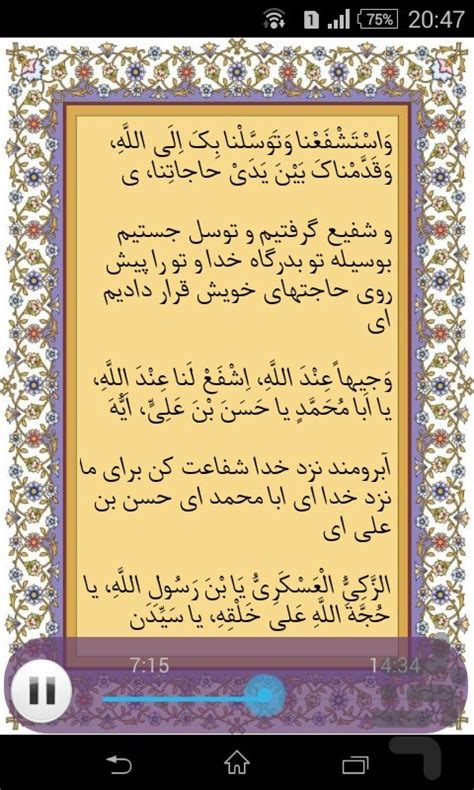 75% 20:47
وَاسْتَشْفَعْنا وَتَوَسَّلْنا بِکَ اِلَی اللَّهِ،
وَقَدَّمْناکَ بَیْنَ یَدَیْ حاجاتِنا، ی
و شفیع گرفتیم و توسل جستیم
بوسیله تو بدرگاه خدا و تو را پیش
روی حاجتهای خویش قرار دادیم
ای
وَجیهاً عِنْدَ اللَّهِ، اِشْفَعْ لَنا عِنْدَ اللَّهِ،
یا اَبا مُحَمَّدٍ یا حَسَنَ بْنَ عَلِیٍّ، اَیُّهَ
آبرومند نزد خدا شفاعت کن برای ما
نزد خدا ای ابا محمد ای حسن بن
علی ای
الزَّکِیُّ الْعَسْکَرِیُّ یَا بْنَ رَسُولِ اللَّهِ، یا
حُجَّةَ اللَّهِ عَلی خَلْقِهِ، یا سَیِّدَن
7:15 14:34